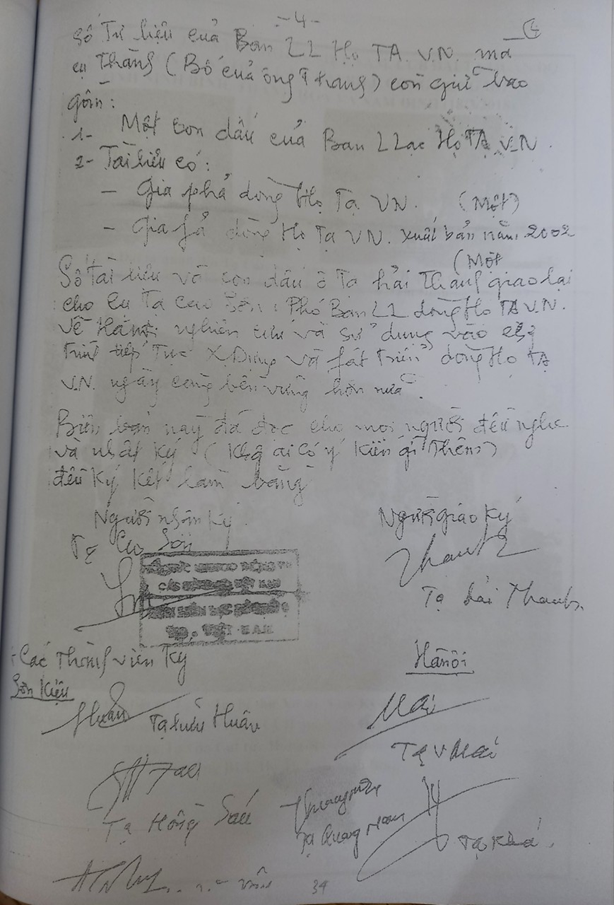 - 4 -
Số Tư liệu của Ban LL Họ TẠ V.N. mà
cụ Thành (Bố của ông Thanh) còn giữ bao
gồm:
1- Một con dấu của Ban LLạc Họ TẠ V.N.
2- Tài liệu có:
- Gia phả dòng Họ Tạ VN. (Một)
- Gia fả dòng Họ Tạ VN. xuất bản năm 2002
(Một
Số tài liệu và con dấu ô Tạ hải Thanh giao lại
cho cụ Tạ Cao Sơn: Phó Ban LL dòng Họ TẠ V.N.
Về Hànội nghiên cứu và sử dụng vào
tiếp Tục X.Dựng và fát triển dòng Họ TẠ
V.N. ngày càng bền vững hơn nữa.
Biên bản này đã đọc cho mọi người đều nghe
và nhất ký (Khg ai có ý kiến gì thêm)
đều ký kết làm bằng
Người nhận ký
Người giao ký
Tạ Cao Sơn
Thanh
Tạ hải Thanh.
VIỆT NAM
Các Thành viên Ký
Hànội
Sơn Kiệu
Huân Tạ Hữu Huân
Mai
Tạ V Mai
Tạ Hồng Sáu
Tạ Quang Nam
Tạ Khá.
34